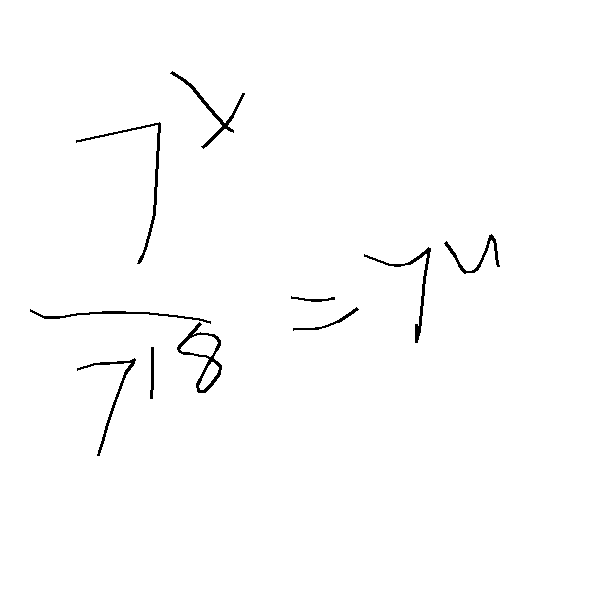 7^x
7^18 = 7^u